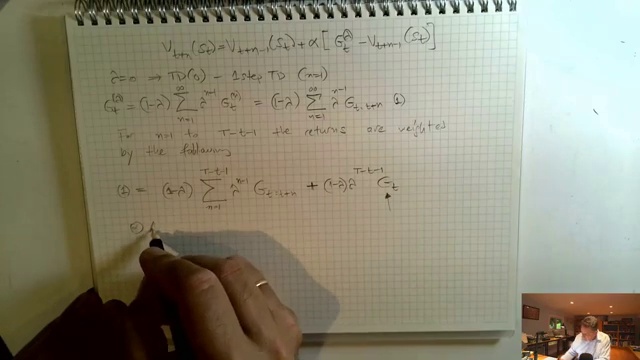 V_{t+n}(S_t) = V_{t+n-1}(S_t) + α [ G_t^{(λ)} - V_{t+n-1}(S_t) ]
λ=0 ⇒ TD(0) - 1 step TD (n=1)
G_t^{(λ)} = (1-λ) ∑_{n=1}^{∞} λ^{n-1} G_t^{(n)} = (1-λ) ∑_{n=1}^{∞} λ^{n-1} G_{t:t+n} (1)
For n=1 to T-t-1 the returns are weighted
by the following
(1) = (1-λ) ∑_{n=1}^{T-t-1} λ^{n-1} G_{t:t+n} + (1-λ) λ^{T-t-1} G_t